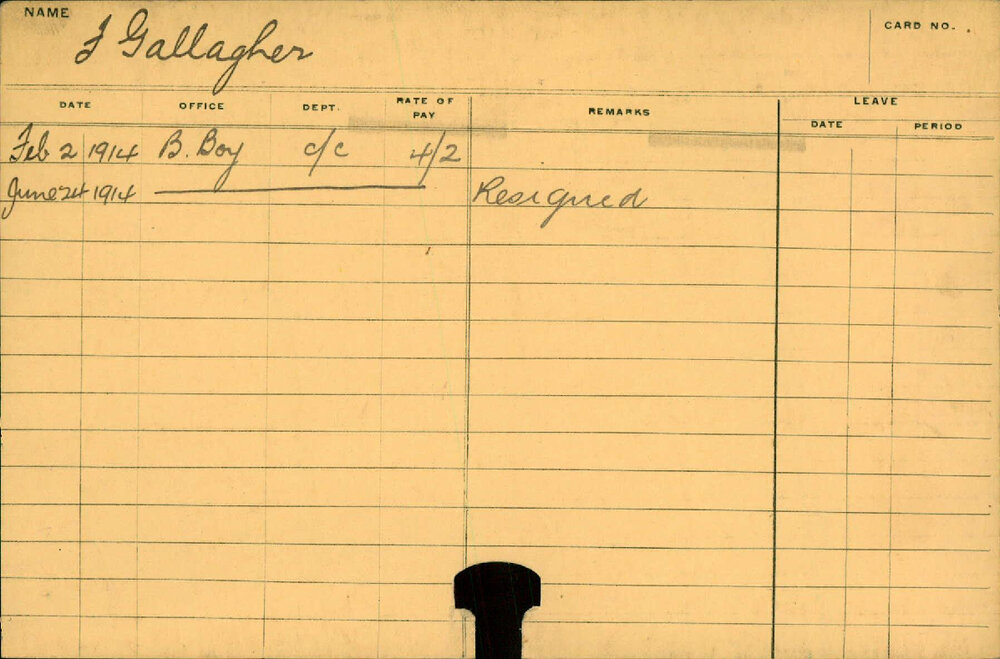 NAME J Gallagher CARD NO.
DATE OFFICE DEPT. RATE OF PAY REMARKS LEAVE
DATE PERIOD
Feb 2 1914 B. Boy c/c 4/2
June 24 1914 Resigned